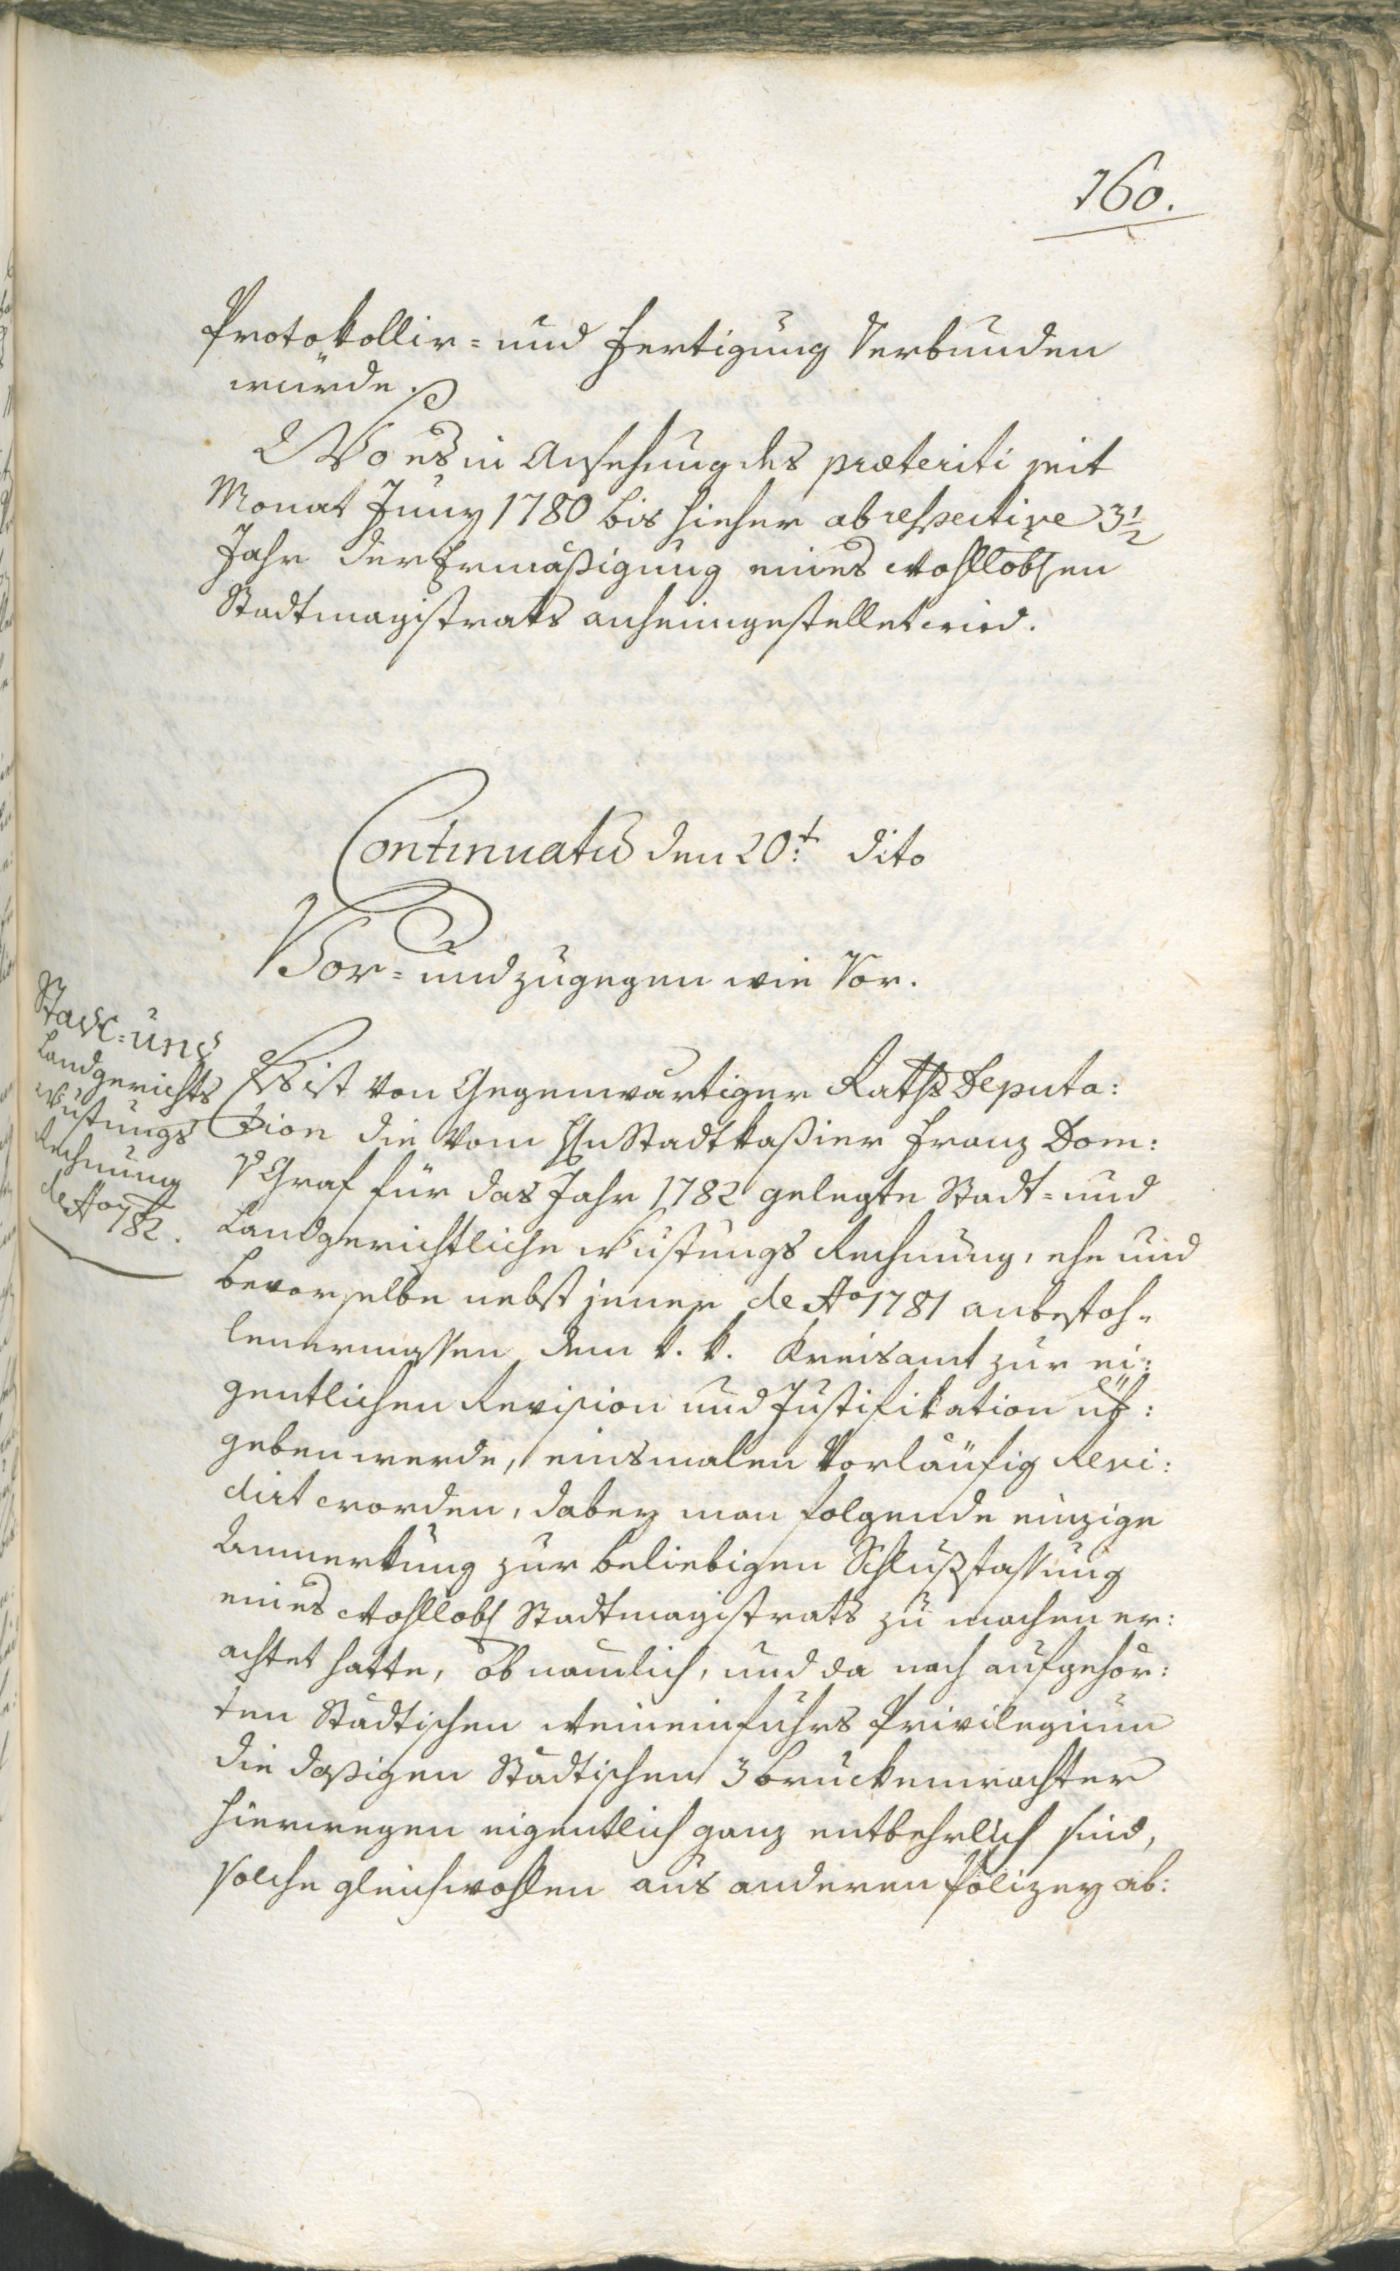 160.
Protokollir= und Fertigung Verbunden
würde.
Wo es in Ansehung des præteriti seit
Monat Juny 1780 bis hieher ab respective 3 1/2
Jahr der Ermäßigung eines Wohllobℓen
Stadtmagistrats anheimgestellet wird.
Continuatũ den 20t. dito
Vor= und zugegen wie Vor.
Stadt= und
Landgerichts
Wustungs
Rechnung
de Ao 782.
Es ist Von Gegenwärtiger Raths Deputa:
tion die Vom Hℓn Stadtkaßier Franz Dom:
Graf für das Jahr 1782 gelegte Stadt= und
Landgerichtliche Wustungs Rechnung, ehe und
bevor selbe nebst jener de Ao 1781 anbefoh=
lenermassen dem k. k. Kreisamt zur ei:
gentlichen Revision und Justifikation üb:
geben werde, einsmalen Vorläufig Revi:
dirt worden, dabey man folgende einzige
Anmerkung zur beliebigen Schlußfassung
eines Wohllobℓ Stadtmagistrats zu machen er:
achtet hatte, ob namlich, und da nach aufgehör:
ten Stadtischen Weineinfuhrs Privilegium
die daßigen Stadtischen 3 Bruckenwachter
hierwegen eigentlich ganz entbehrlich sind,
solche gleichwohlen aus anderen Polizey ab: